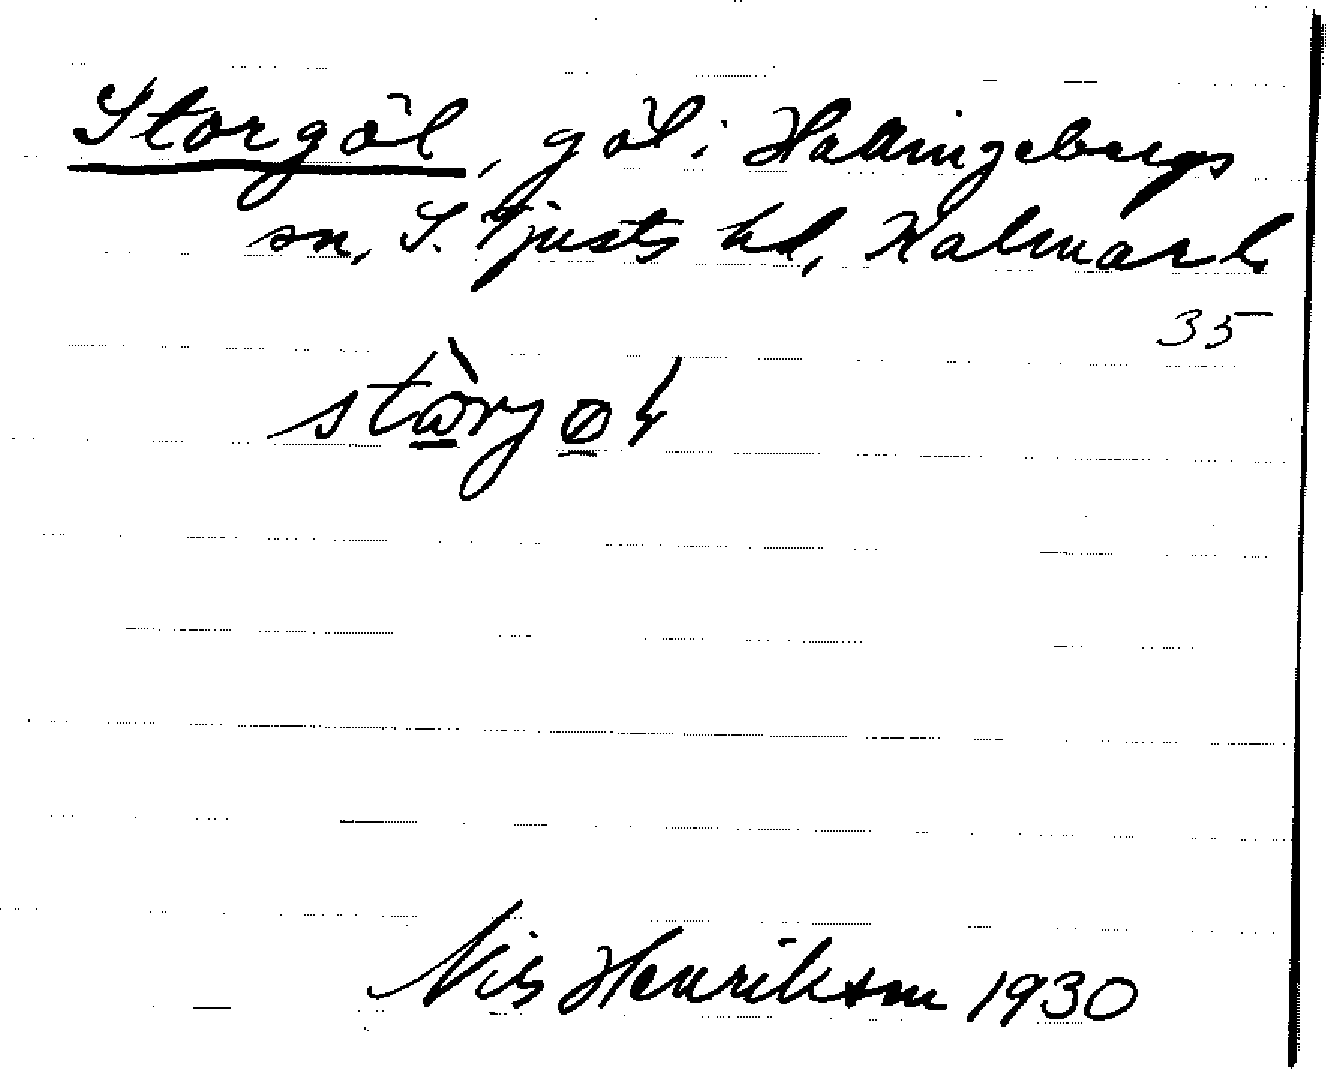 Storgöl, göl i Hallingebergs
sn, S. Tjusts hd, Kalmar l.
35
stòrjøł
Nils Henrikson 1930